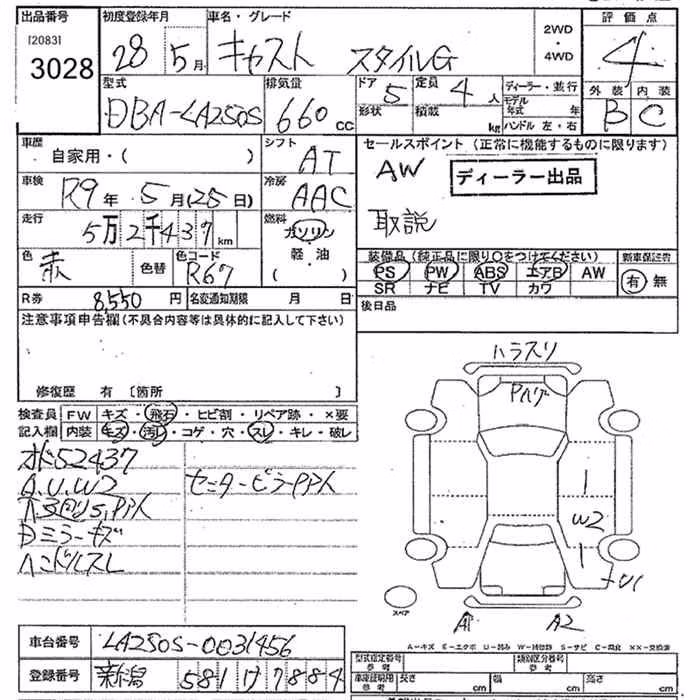 出品番号 初度登録年月 車名・グレード 評価点
[2083]
3028 28 5月 キャスト スタイルG 2WD・4WD 4
型式 排気量 ドア形状 5 定員 4人 積載 kg ディーラー・並行 外装 内装
DBA-LA250S 660cc モデル年式 年 B C
ハンドル 左・右
車歴 自家用・( ) シフト AT セールスポイント(正常に機能するものに限ります)
車検 R9年 5月(25日) 冷房 AAC AW ディーラー出品
走行 5万2千437km 燃料 ガソリン 取説
軽・油
( )
色 赤 色替 色コード R67 装備品(純正品に限り○をつけてください) 新車保証書
PS PW ABS エアB AW 有 無
R券 8,550円 名変通知期限 月 日 SR ナビ TV カワ
注意事項申告欄(不具合内容等は具体的に記入して下さい) 後日品
修復歴 有 〔箇所 〕
検査員 FW キズ・飛石・ヒビ割・リペア跡・×要
記入欄 内装 キズ・汚レ・コゲ・穴・スレ・キレ・破レ
ハラスリ
Pハゲ
52437
A.U.W2 センターピラーPP人
Dミラーキズ
ハンドルスレ
1
W2
1
スペア
A1 A2
A-キズ E-エクボ U-凹み W-補修跡 S-サビ C-腐食 XX-交換済
車台番号 LA250S-0031456 型式指定番号 参考 類別区分番号 参考
登録番号 新潟 581 け 7884 車庫証明用 参考 長さ cm 幅 cm 高さ cm